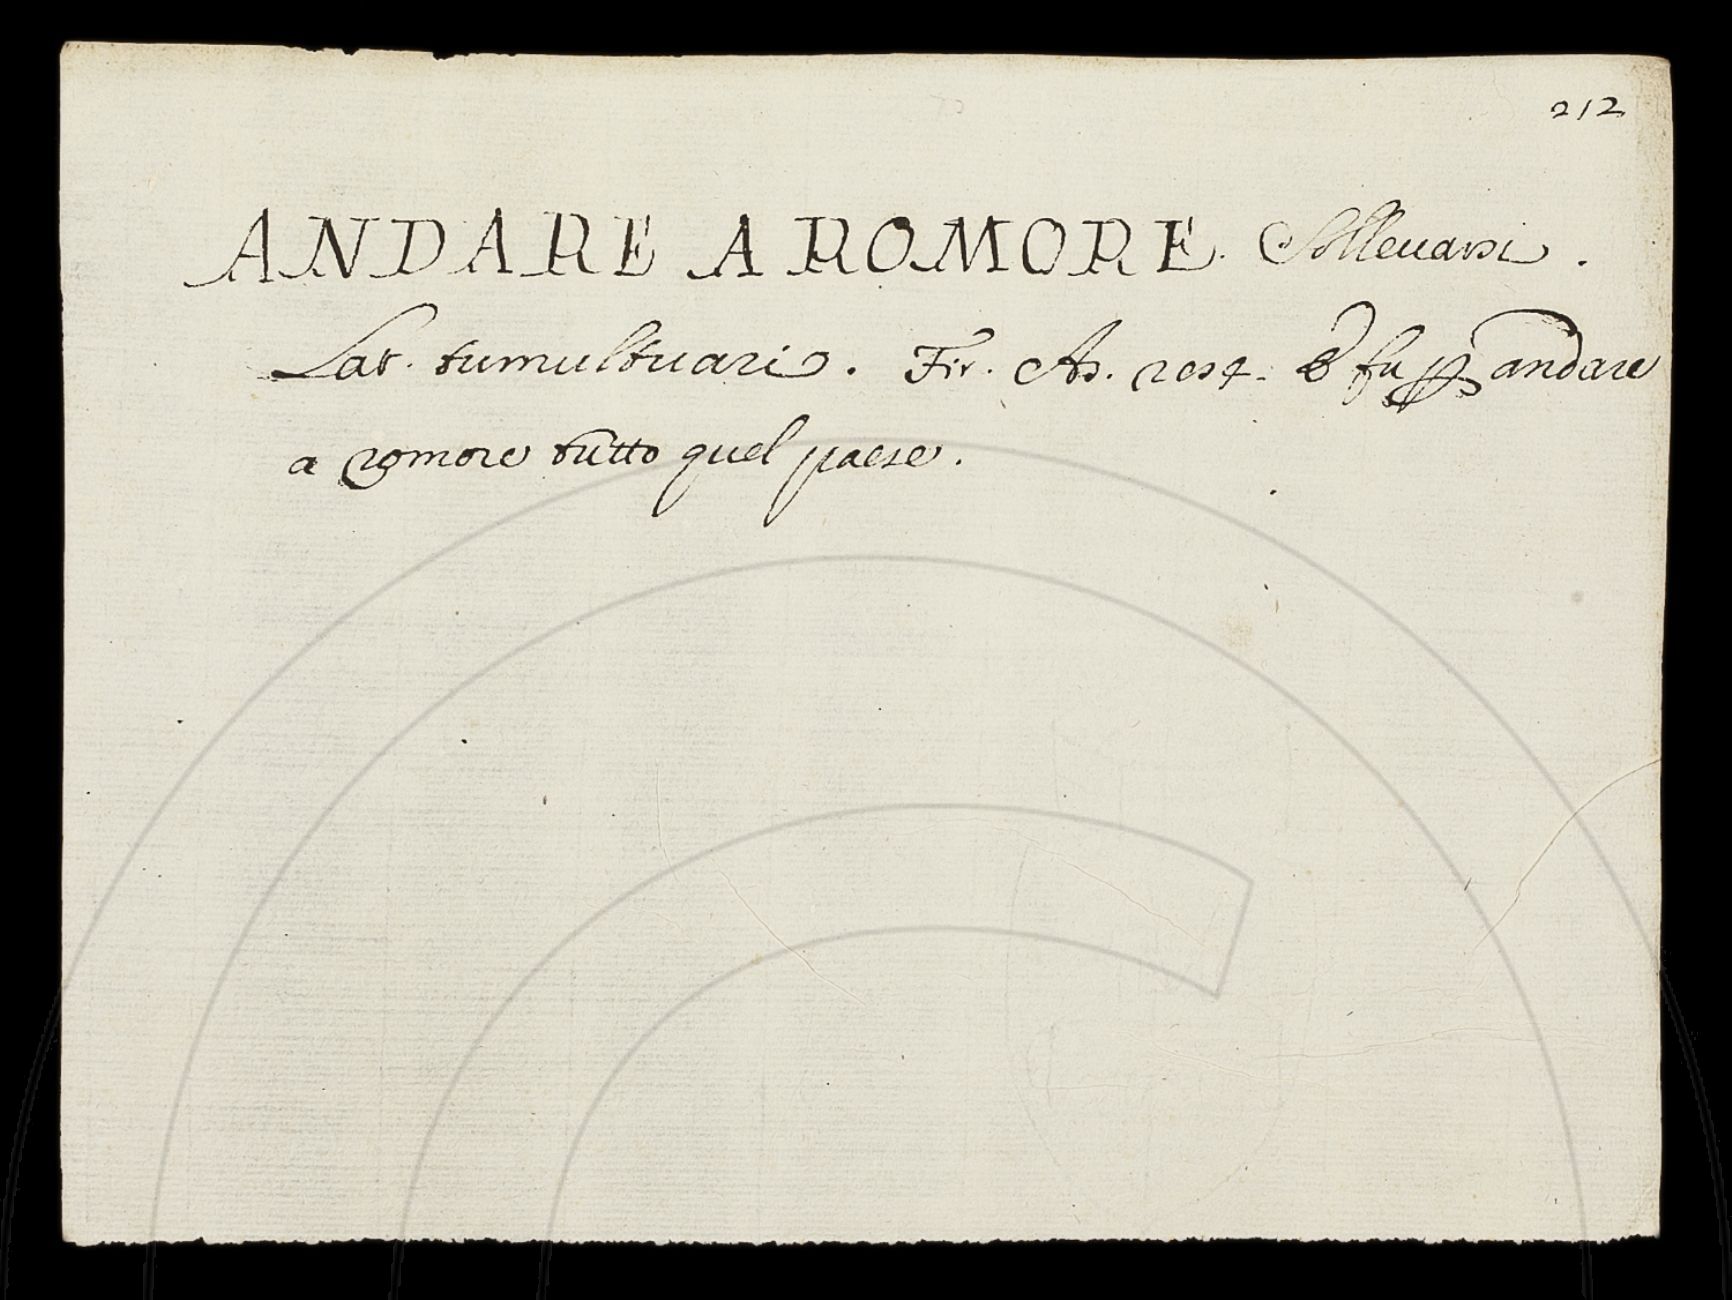 212
ANDARE A ROMORE. Solleuarsi.
Lat. tumultuari. Fir. As. E fu p andare
a romore tutto quel paese.